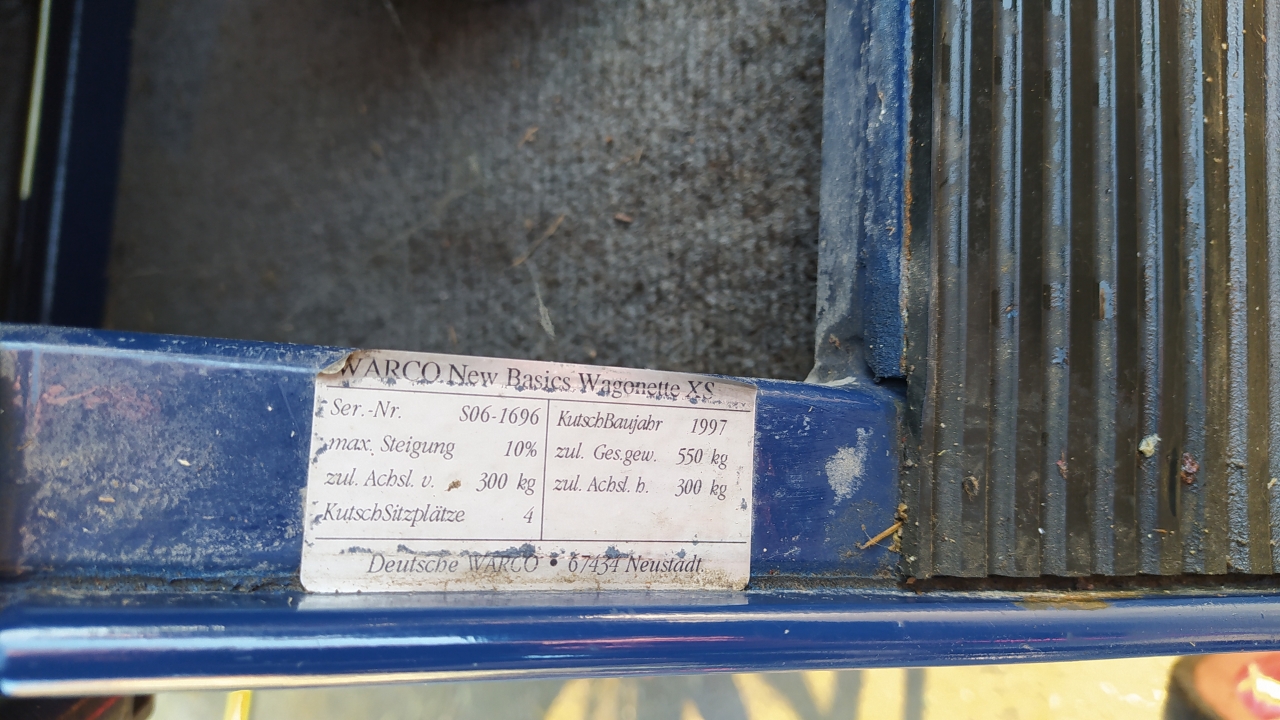 WARCO New Basics Wagonette XS
Ser.-Nr. S06-1696
max. Steigung 10%
zul. Achsl. v. 300 kg
KutschSitzplätze 4
KutschBaujahr 1997
zul. Ges.gew. 550 kg
zul. Achsl. h. 300 kg
Deutsche WARCO • 67434 Neustadt